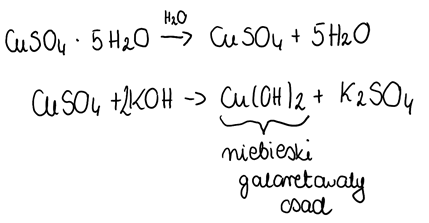 CuSO4 · 5H2O →(H2O) CuSO4 + 5H2O
CuSO4 + 2KOH -> Cu(OH)2 + K2SO4
niebieski
galaretowaty
osad